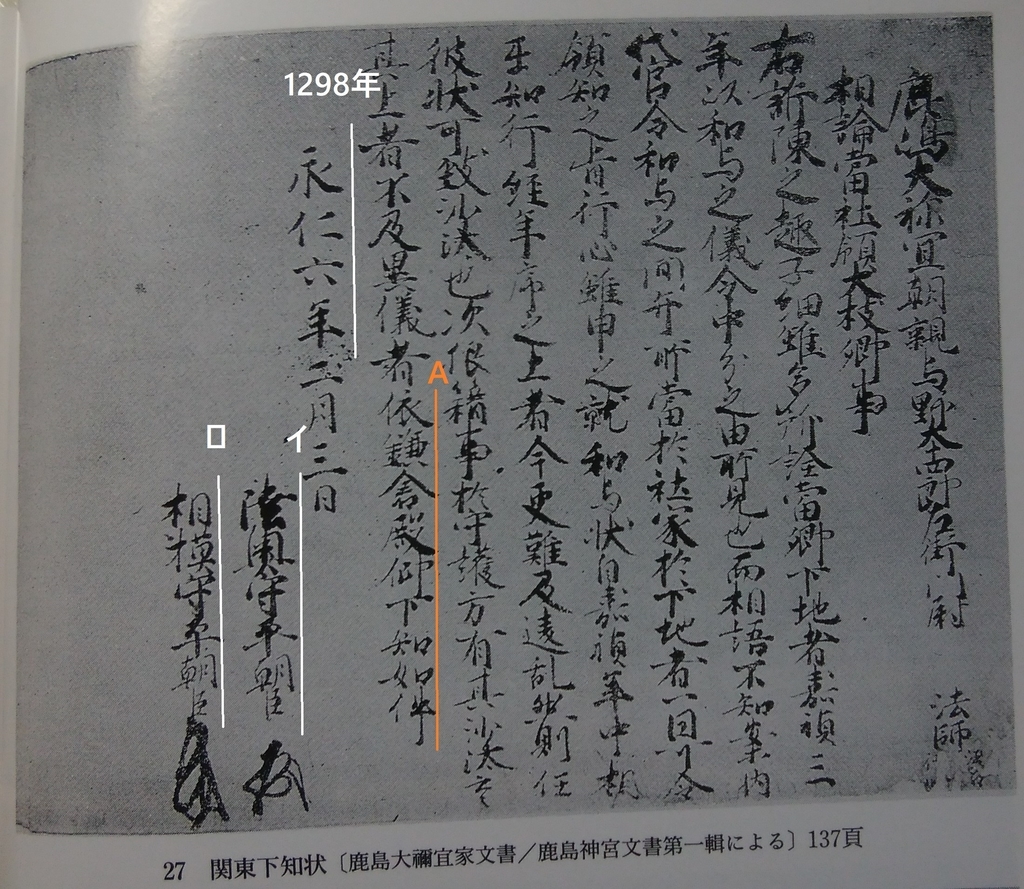 鹿嶋大祢宜朝親与野本四郎左衛門尉法師
相論當社領大枝郷事
右訴陳之趣子細雖多所詮當郷下地者嘉禎三
年以和与之儀令中分之由所見也而相語不知案内
代官令和与之間并所當於社家於下地者一円可令
領知之旨行心雖申之就和与状自嘉禎年中朝
知行経年序之上者今更難及違乱然則任
彼状可致沙汰也次狼藉事於守護方有其沙汰云々
其上者不及異儀者依鎌倉殿仰下知如件
1298年
永仁六年二月三日
A
イ
陸奥守平朝臣
ロ
相模守平朝臣
27 関東下知状〔鹿島大禰宜家文書/鹿島神宮文書第一輯による〕137頁